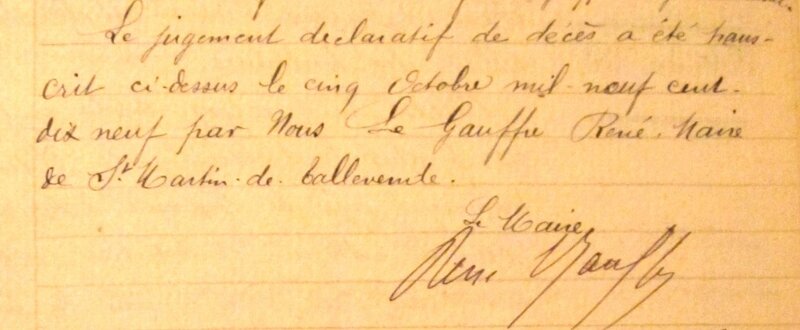 Le jugement declaratif de décès a été trans-
crit ci-dessus le cinq Octobre mil-neuf cent-
dix neuf par Nous Le Gauffre René, Maire
de St Martin-de-Tallevende.
Le Maire
René Gauffre